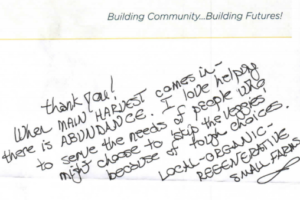 Building Community...Building Futures!
thank you!
When MAIN HARVEST comes in -
there is ABUNDANCE. I love helping
to serve the needs of people who
might choose to skip the veggies
because of tough choices.
LOCAL-ORGANIC-
REGENERATIVE
SMALL FARMS